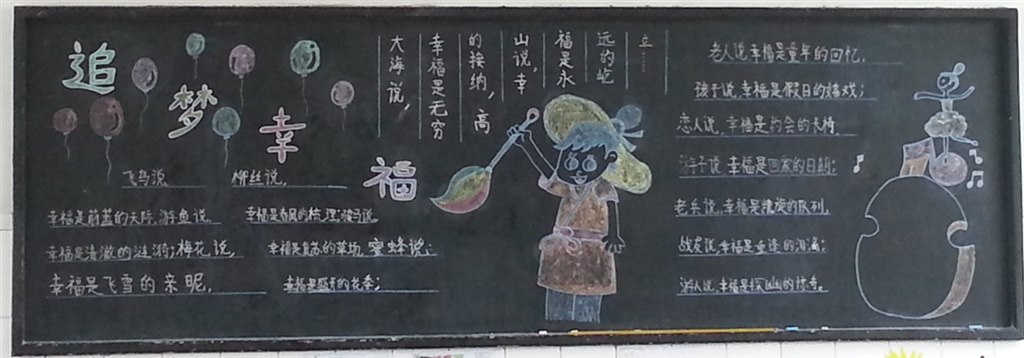 追梦幸福
飞鸟说， 柳丝说，
幸福是蔚蓝的天际，游鱼说， 幸福是春风的梳理，骏马说，
幸福是清澈的涟漪；梅花说， 幸福是复苏的草场，蜜蜂说：
幸福是飞雪的亲昵， 幸福是盛开的花季；
大海说，
幸福是无穷
的接纳，高
山说，幸
福是永
远的屹
立……
老人说幸福是童年的回忆，
孩子说，幸福是假日的嬉戏；
恋人说，幸福是约会的长椅
游子说，幸福是回家的日期；
老兵说，幸福是凯旋的队列，
战友说幸福是重逢的泪滴；
游人说，幸福是探幽的惊奇。